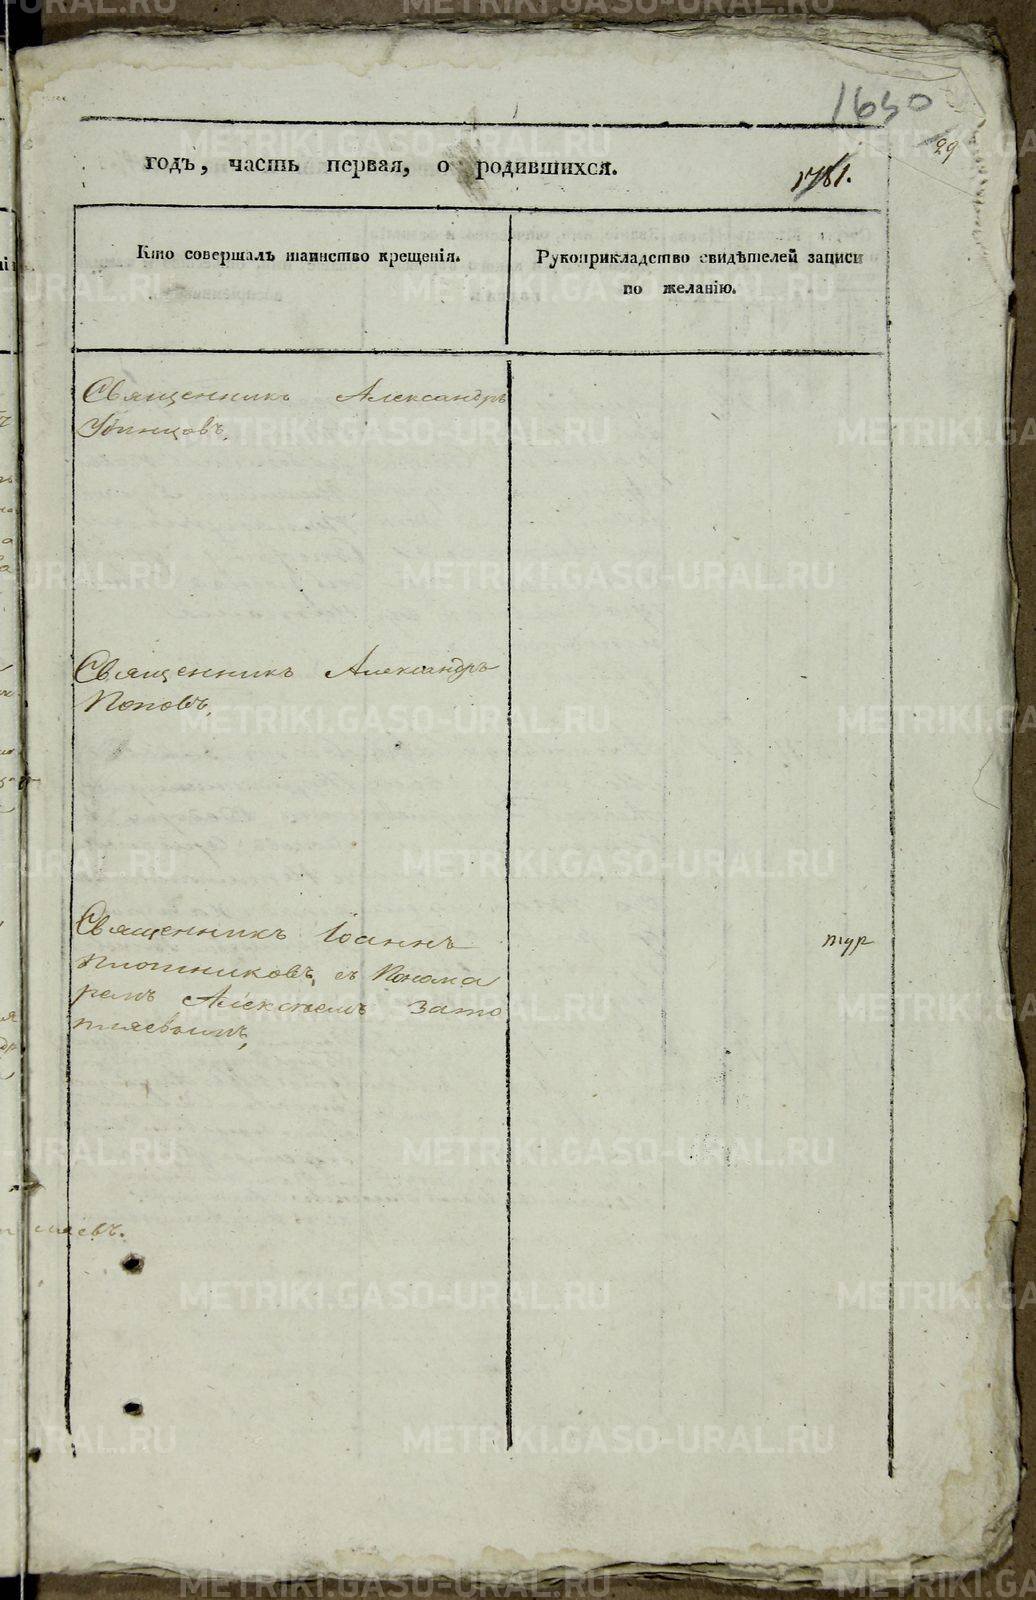 1650
29
годъ, часть первая, о родившихся.
1781.
Кто совершалъ таинство крещенія.
Рукоприкладство свидѣтелей записи
по желанію.
Священникъ Александръ
Удинцовъ.
Священникъ Александръ
Поповъ,
Священникъ Іоаннъ
Плотниковъ, съ Понома
ремъ Алексѣемъ Зато
пляевымъ,
тур
METRIKI.GASO-URAL.RU